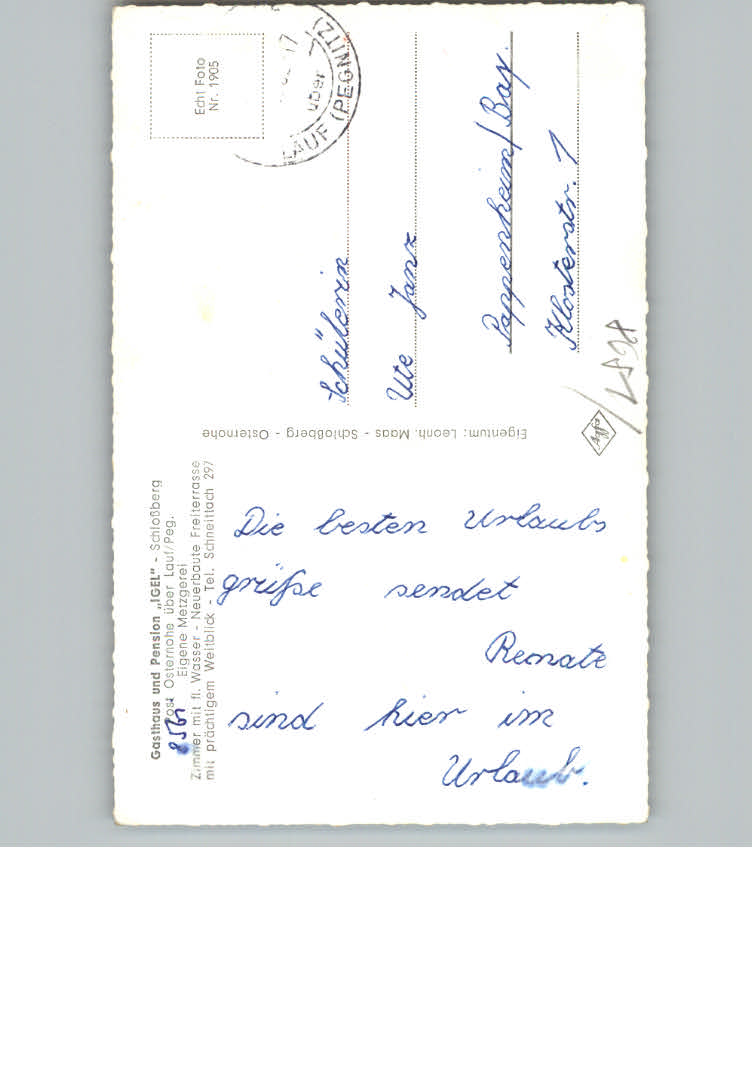 Gasthaus und Pension „IGEL" - Schloßberg
Post Osternohe über Lauf/Peg.
8561
Eigene Metzgerei
Zimmer mit fl. Wasser - Neuerbaute Freiterrasse
mit prächtigem Weitblick - Tel. Schnaittach 297
Die besten Urlaubs
grüße sendet
Renate
sind hier im
Urlaub.
Eigentum: Leonh. Maas - Schloßberg - Osternohe
Agfa
Echt Foto
Nr. 1905
17
über
LAUF (PEGNITZ)
Schülerin
Ute Janz
Pappenheim/Bay.
Klosterstr. 1